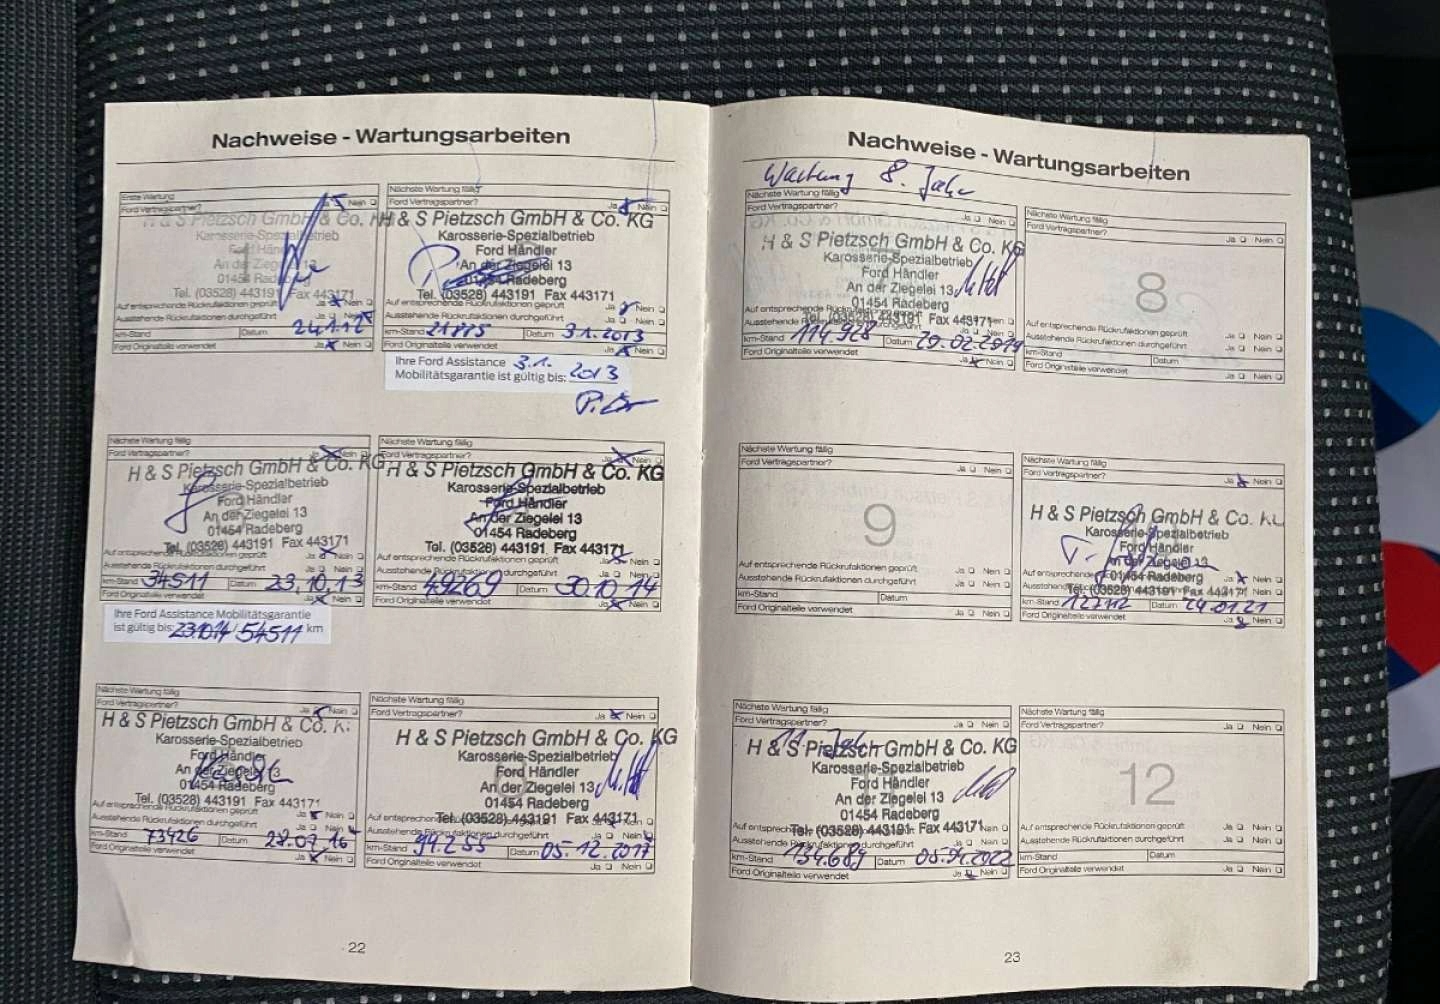 Nachweise - Wartungsarbeiten
Erste Wartung
Nein
Ford Vertragspartner?
H & S Pietzsch GmbH & Co. K
Karosserie-Spezialbetrieb
Ford Händler
An der Ziegelei 13
01454 Radeberg
Tel. (03528) 443191 Fax 443171
Auf entsprechende Rückrufaktionen geprüft Ja Nein
Ausstehende Rückrufaktionen durchgeführt Ja Nein
km-Stand Datum
Ford Originalteile verwendet Ja Nein
Nächste Wartung fällig
Ford Vertragspartner? Ja Nein
H & S Pietzsch GmbH & Co. KG
Karosserie-Spezialbetrieb
Ford Händler
An der Ziegelei 13
01454 Radeberg
Tel. (03528) 443191 Fax 443171
Auf entsprechende Rückrufaktionen geprüft Ja Nein
Ausstehende Rückrufaktionen durchgeführt Ja Nein
km-Stand 21885 Datum 3.1.2013
Ford Originalteile verwendet Ja Nein
Ihre Ford Assistance 3.1.
Mobilitätsgarantie ist gültig bis: 2013
Nächste Wartung fällig
Ford Vertragspartner? Ja Nein
H & S Pietzsch GmbH & Co. KG
Karosserie-Spezialbetrieb
Ford Händler
An der Ziegelei 13
01454 Radeberg
Tel. (03528) 443191 Fax 443171
Auf entsprechende Rückrufaktionen geprüft Ja Nein
Ausstehende Rückrufaktionen durchgeführt Ja Nein
km-Stand 34511 Datum 23.10.13
Ford Originalteile verwendet Ja Nein
Ihre Ford Assistance Mobilitätsgarantie
ist gültig bis: 23.10.14 / 54511 km
Nächste Wartung fällig
Ford Vertragspartner? Ja Nein
H & S Pietzsch GmbH & Co. KG
Karosserie-Spezialbetrieb
Ford Händler
An der Ziegelei 13
01454 Radeberg
Tel. (03528) 443191 Fax 443171
Auf entsprechende Rückrufaktionen geprüft Ja Nein
Ausstehende Rückrufaktionen durchgeführt Ja Nein
km-Stand 49269 Datum 30.10.14
Ford Originalteile verwendet Ja Nein
Nächste Wartung fällig
Ford Vertragspartner? Ja Nein
H & S Pietzsch GmbH & Co. K
Karosserie-Spezialbetrieb
Ford Händler
An der Ziegelei 13
01454 Radeberg
Tel. (03528) 443191 Fax 443171
Auf entsprechende Rückrufaktionen geprüft Ja Nein
Ausstehende Rückrufaktionen durchgeführt Ja Nein
km-Stand 73426 Datum 27.07.16
Ford Originalteile verwendet Ja Nein
Nächste Wartung fällig
Ford Vertragspartner? Ja Nein
H & S Pietzsch GmbH & Co. KG
Karosserie-Spezialbetrieb
Ford Händler
An der Ziegelei 13
01454 Radeberg
Tel. (03528) 443191 Fax 443171
Auf entsprechende Rückrufaktionen geprüft
Ausstehende Rückrufaktionen durchgeführt Ja Nein
km-Stand 94.255 Datum 05.12.2017
Ford Originalteile verwendet Ja Nein
22
Nachweise - Wartungsarbeiten
Wartung 8. Jahr
Nächste Wartung fällig
Ford Vertragspartner? Ja Nein
H & S Pietzsch GmbH & Co. KG
Karosserie-Spezialbetrieb
Ford Händler
An der Ziegelei 13
01454 Radeberg
Tel. (03528) 443191 Fax 443171
Auf entsprechende Rückrufaktionen geprüft
Ausstehende Rückrufaktionen durchgeführt
km-Stand 114.928 Datum
Ford Originalteile verwendet Ja Nein
Nächste Wartung fällig
Ford Vertragspartner? Ja Nein
8
Auf entsprechende Rückrufaktionen geprüft Ja Nein
Ausstehende Rückrufaktionen durchgeführt Ja Nein
km-Stand Datum
Ford Originalteile verwendet Ja Nein
Nächste Wartung fällig
Ford Vertragspartner? Ja Nein
9
Auf entsprechende Rückrufaktionen geprüft Ja Nein
Ausstehende Rückrufaktionen durchgeführt Ja Nein
km-Stand Datum
Ford Originalteile verwendet Ja Nein
Nächste Wartung fällig
Ford Vertragspartner? Ja Nein
H & S Pietzsch GmbH & Co. KG
Karosserie-Spezialbetrieb
Ford Händler
An der Ziegelei 13
01454 Radeberg
Tel. (03528) 443191 Fax 443171
Auf entsprechende Ja Nein
km-Stand 127112 Datum 24.01.21
Ford Originalteile verwendet Ja Nein
Nächste Wartung fällig
Ford Vertragspartner? Ja Nein
H & S Pietzsch GmbH & Co. KG
Karosserie-Spezialbetrieb
Ford Händler
An der Ziegelei 13
01454 Radeberg
Tel. (03528) 443191 Fax 443171
Auf entsprechende Nein
Ausstehende Rückrufaktionen durchgeführt Ja Nein
km-Stand 134.689 Datum 05.04.2022
Ford Originalteile verwendet Ja Nein
Nächste Wartung fällig
Ford Vertragspartner? Ja Nein
12
Auf entsprechende Rückrufaktionen geprüft Ja Nein
Ausstehende Rückrufaktionen durchgeführt Ja Nein
km-Stand Datum
Ford Originalteile verwendet Ja Nein
23